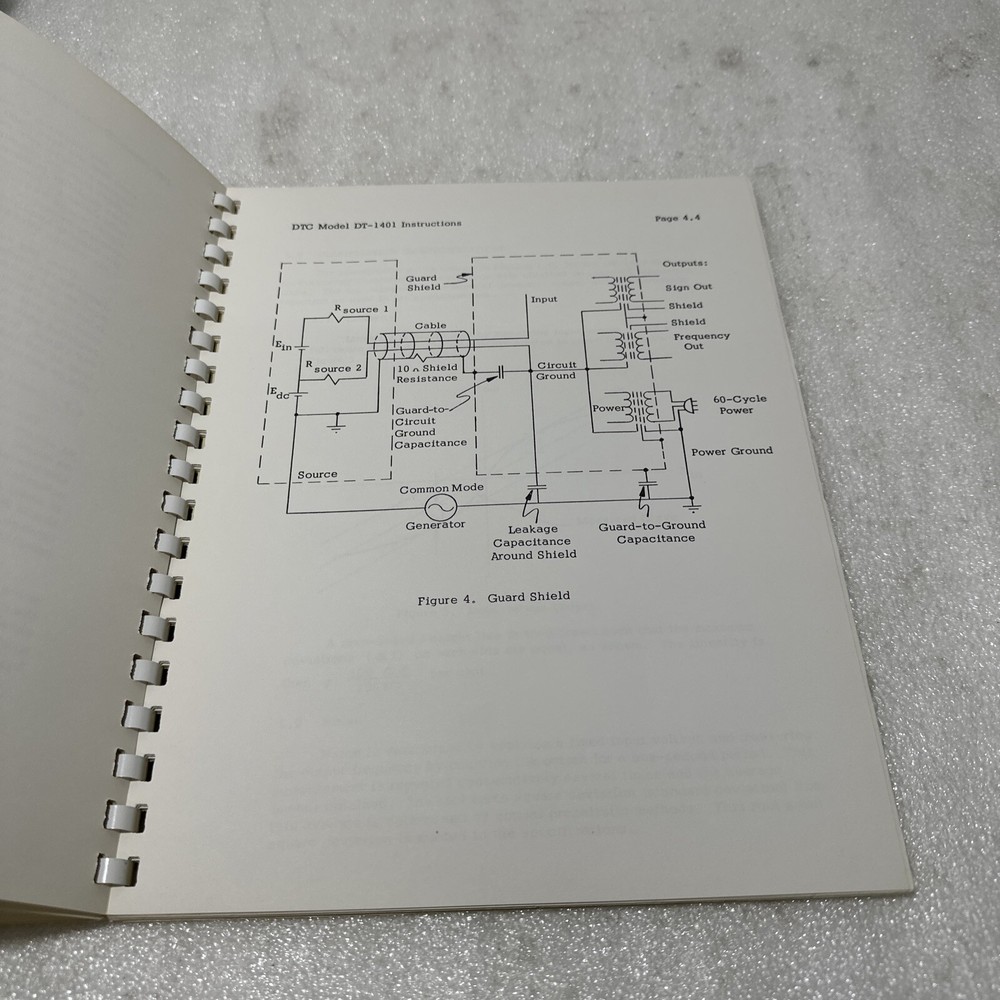 DTC Model DT-1401 Instructions
Page 4.4
Outputs:
Guard
Shield
Sign Out
Input
Shield
R source 1
Cable
Shield
Frequency
Out
Ein
R source 2
10 Ω Shield
Resistance
Circuit
Ground
Edc
Guard-to-
Circuit
Ground
Capacitance
Power
60-Cycle
Power
Power Ground
Source
Common Mode
Generator
Leakage
Capacitance
Around Shield
Guard-to-Ground
Capacitance
Figure 4. Guard Shield